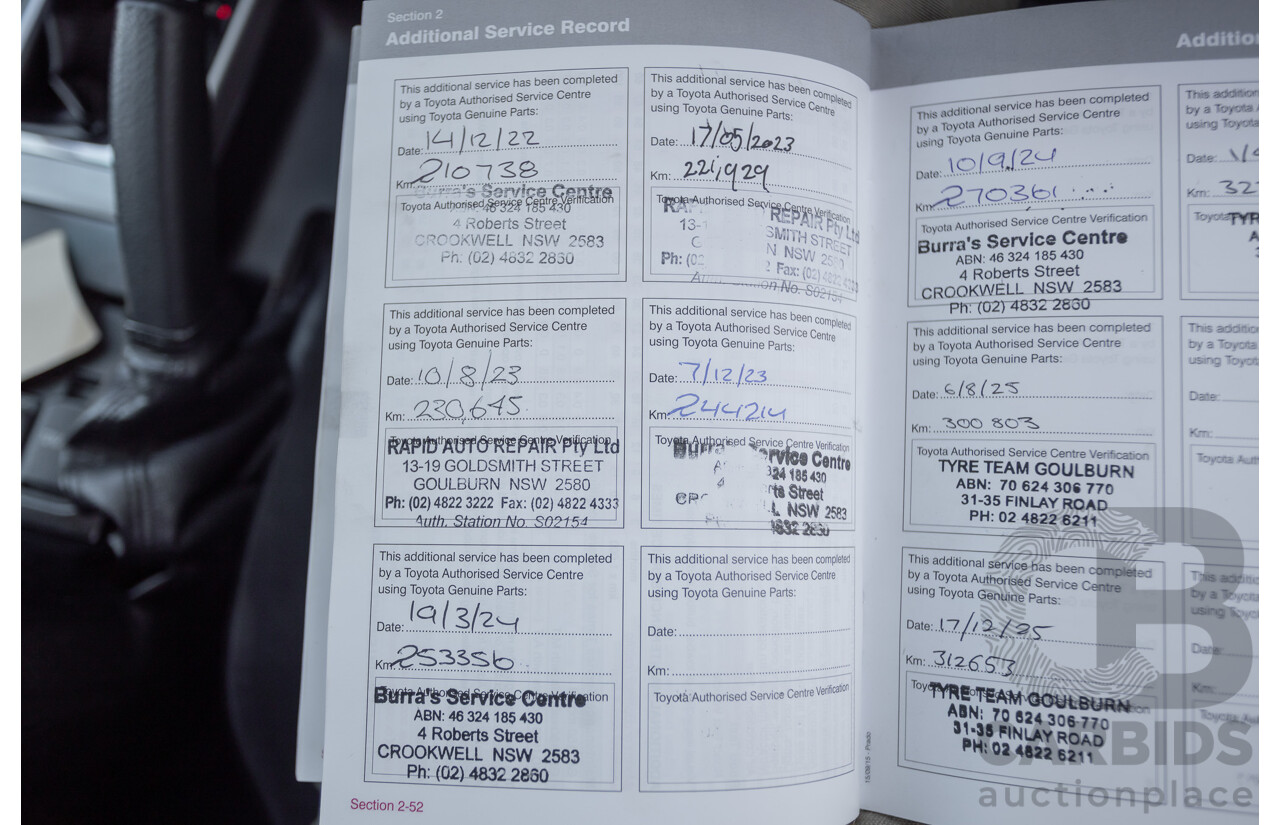 Section 2
Additional Service Record
This additional service has been completed
by a Toyota Authorised Service Centre
using Toyota Genuine Parts:
Date: 14/12/22
Km: 210738
Toyota Authorised Service Centre Verification
Burra's Service Centre
46 324 185 430
4 Roberts Street
CROOKWELL NSW 2583
Ph: (02) 4832 2860
This additional service has been completed
by a Toyota Authorised Service Centre
using Toyota Genuine Parts:
Date: 17/05/2023
Km: 221,929
Toyota Authorised Service Centre Verification
REPAIR Pty Ltd
13-
SMITH STREET
NSW
Ph: (02
Fax: (02) 4822 4333
No. S02154
This additional service has been completed
by a Toyota Authorised Service Centre
using Toyota Genuine Parts:
Date: 10/8/23
Km: 230,645
Toyota Authorised Service Centre Verification
RAPID AUTO REPAIR Pty Ltd
13-19 GOLDSMITH STREET
GOULBURN NSW 2580
Ph: (02) 4822 3222 Fax: (02) 4822 4333
Auth. Station No. S02154
This additional service has been completed
by a Toyota Authorised Service Centre
using Toyota Genuine Parts:
Date: 7/12/23
Km: 244214
Toyota Authorised Service Centre Verification
Burra rvice Centre
324 185 430
4 rts Street
CR L NSW 2583
4832 2860
This additional service has been completed
by a Toyota Authorised Service Centre
using Toyota Genuine Parts:
Date: 19/3/24
Km: 253356
Toyota Authorised Service Centre Verification
Burra's Service Centre
ABN: 46 324 185 430
4 Roberts Street
CROOKWELL NSW 2583
Ph: (02) 4832 2860
This additional service has been completed
by a Toyota Authorised Service Centre
using Toyota Genuine Parts:
Date:
Km:
Toyota Authorised Service Centre Verification
Section 2-52
Additio
This additional service has been completed
by a Toyota Authorised Service Centre
using Toyota Genuine Parts:
Date: 10/9/24
Km: 270361
Toyota Authorised Service Centre Verification
Burra's Service Centre
ABN: 46 324 185 430
4 Roberts Street
CROOKWELL NSW 2583
Ph: (02) 4832 2860
This additional service has been completed
by a Toyota Authorised Service Centre
using Toyota Genuine Parts:
Date: 6/8/25
Km: 300 803
Toyota Authorised Service Centre Verification
TYRE TEAM GOULBURN
ABN: 70 624 306 770
31-35 FINLAY ROAD
PH: 02 4822 6211
This additional service has been completed
by a Toyota Authorised Service Centre
using Toyota Genuine Parts:
Date: 17/12/25
Km: 312653
TYRE TEAM GOULBURN
ABN: 70 624 306 770
31-35 FINLAY ROAD
PH: 02 4822 6211
This addition
by a Toyota
using Toyota
Date:
Km: 32
Toyota
TYR
This additio
by a Toyota
using Toyot
Date:
Km:
Toyota Aut
This additi
by a Toyota
using Toyo
Date:
Km:
CARBIDS
auctionplace